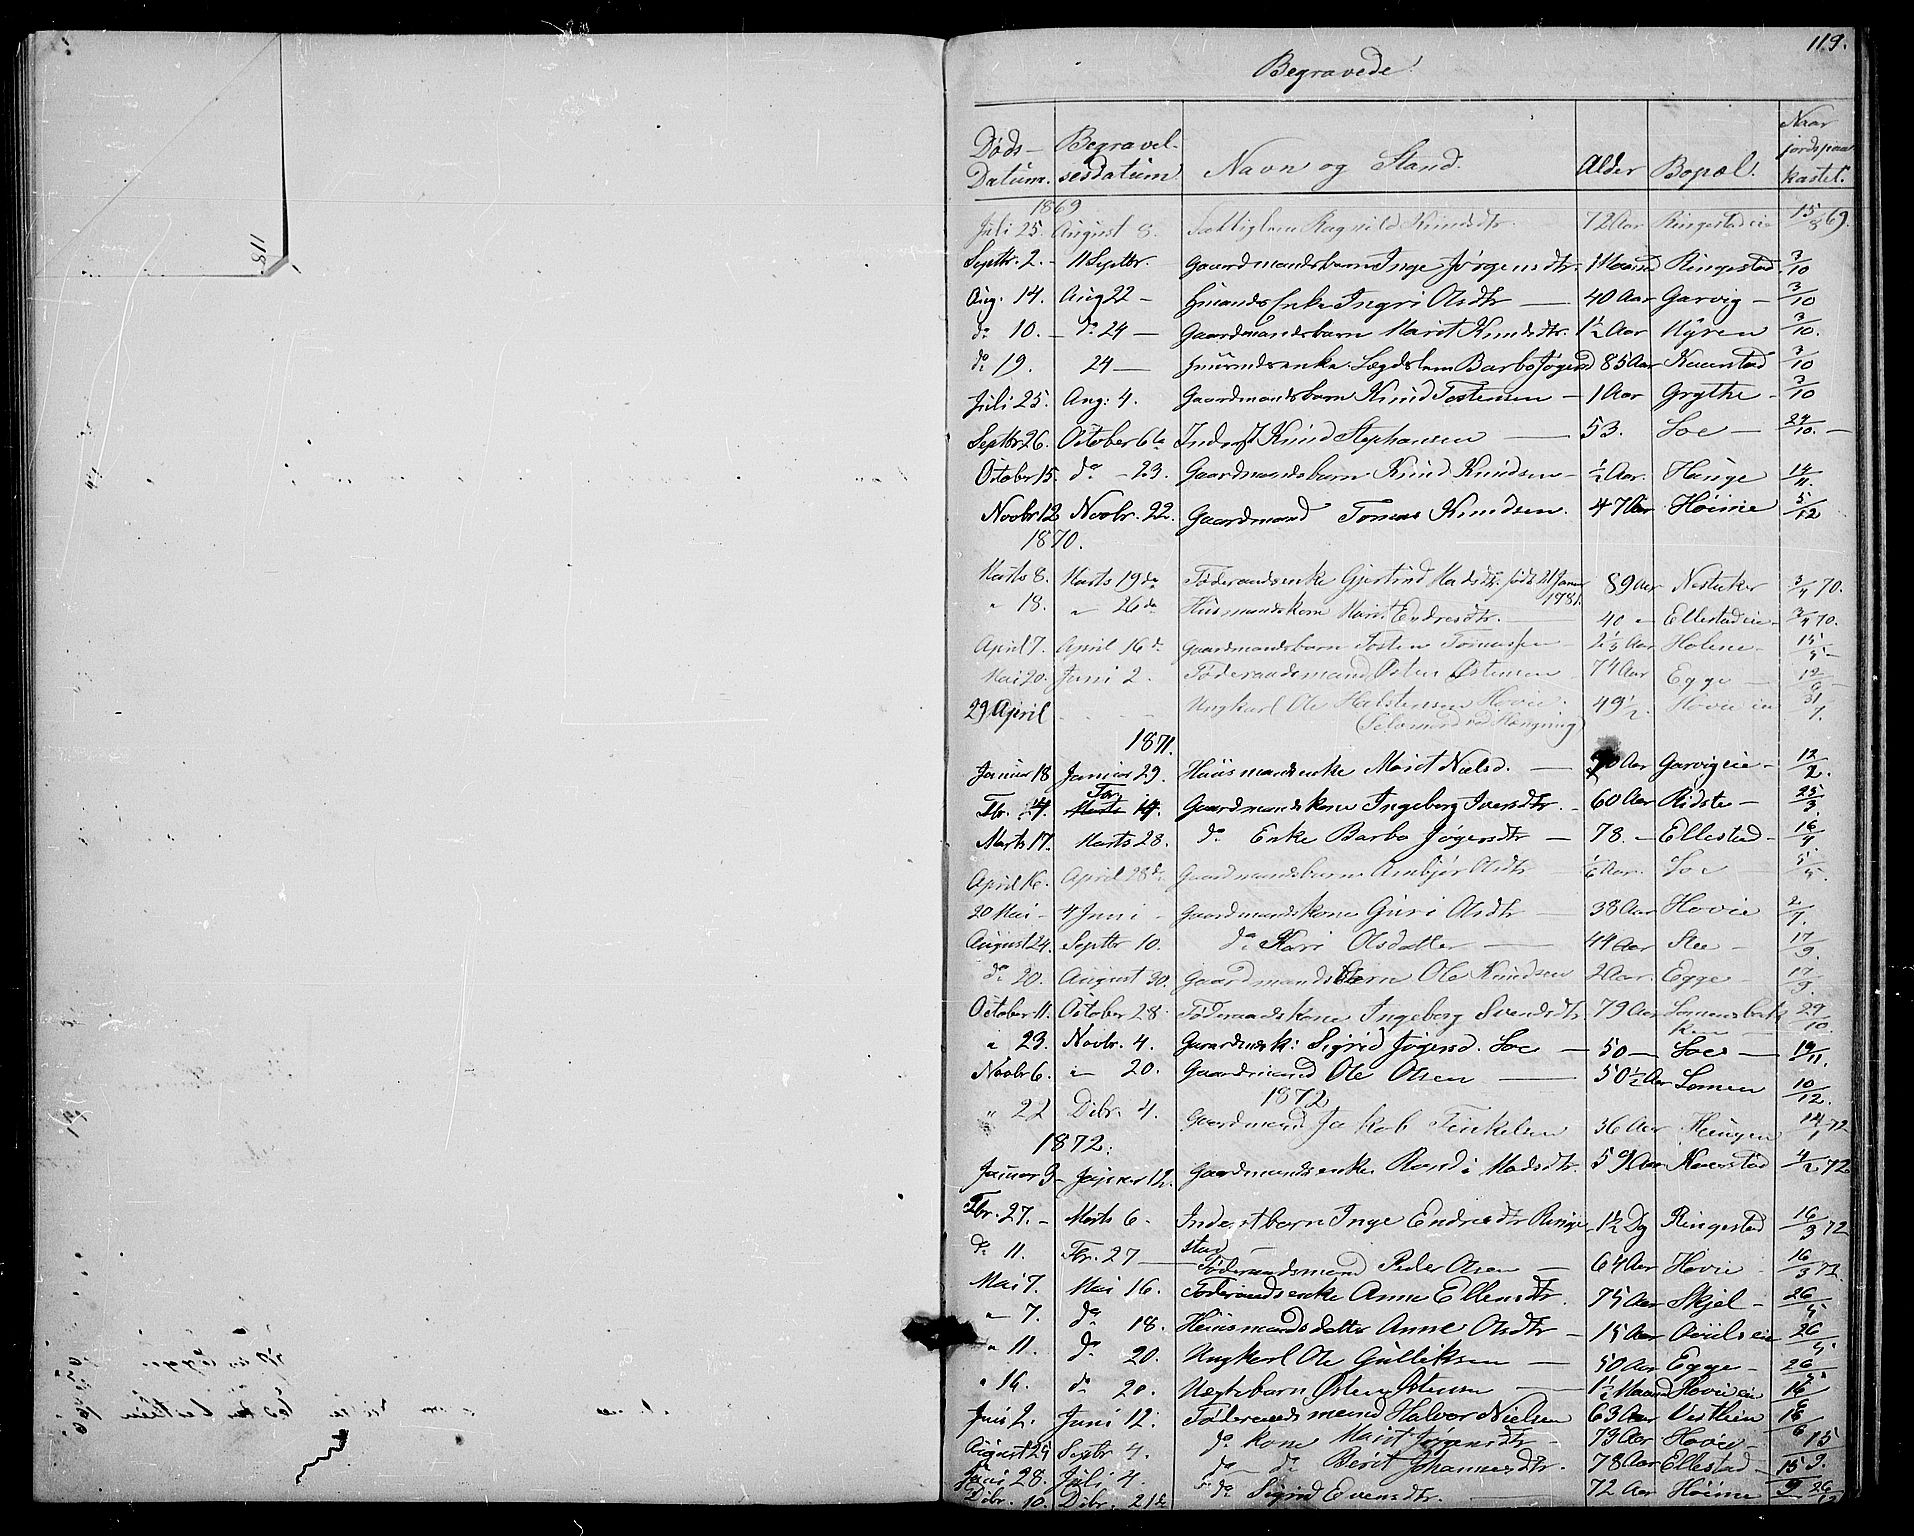 119.
Begravede.
Døds- Datum. Begravel- sesdatum Navn og Stand. Alder Bopæl. Naar jordspaa- kastet.
118.
1869
Juli 25. August 8. Ragnild Knudsdtr. 72 Aar Ringestadeie 15/8 69.
Septbr. 2. - 11 Septbr. Gaardmandsbarn Inge Jørgensdtr. 1 Maaned Ringestad 3/10
Aug. 14. Aug 22 - Hmands Enke Ingri Olsdtr - 40 Aar Garvig - 3/10
do 10. - do 24 - Gaardmandsbarn Marit Knudsdtr. 1½ Aar Nÿren 3/10.
do 19. 24 - Lægdslem Barbo Jøgensd 85 Aar Kaarstad 3/10
Juli 25. Aug: 4. Gaardmandsbarn Knud Tostensen - 1 Aar Grythe - 3/10
Septbr 26. October 6te Inderst Knud Stephansen - 53. Loe - 24/10. -
October 15. do - 23. Gaardmandsbarn Knud Knudsen - ½ Aar. Hauge 14/11.
Novbr 12 Novbr. 22. Gaardmand Tomas Knudsen. 47 Aar Høime 5/12
1870.
Marts 8. Marts 19de Føderaadsenke Gjertrud Madsdtr. født 21 Januar 1781. 89 Aar Nestaker 3/4 70.
" 18. " 26de Husmandskone Marit Endresdtr. - 40 " Ellestadeie - 3/4 70.
April 7. April 16de Gaardmandsbarn Tosten Tomassen - 2⅓ Aar Holene - 15/5 -
Mai 20. Juni 2. Føderaadsmand Østen Østensen 74 Aar Egge - 12/6 -
29 April Ungkarl Ole Halstensen Hovie. 49½ Hovieeie 31/7.
(Selvmord ved Hængning)
1871.
Januar 18 Januar 29. Husmandsenke Marit Nielsd. - Aar Garvigeie - 12/2.
Fbr. 4. Fbr. 14. Gaardmandskone Ingeborg Iversdtr. - 60 Aar Ridste - 25/3
Marts 17. Marts 28. do Enke Barbo Jøgensdtr - 78. - Ellestad - 16/4.
April 16. April 28de Gaardmandsbarn Ambjør Olsdtr - 1/6 Aar. Loe - 5/5.
20 Mai - 4 Juni - Gaardmandskone Guri Olsdtr - 38 Aar Hovie 2/7.
August 24. Septbr 10. do Kari Olsdatter - 44 Aar Slee - 17/9.
do 20. August 30. Gaardmandsbarn Ole Knudsen 2 Aar. Egge - 17/9.
October 11. October 28. Føderaadskone Ingeborg Svendsdtr 79 Aar Lomensbakken - 29/10.
" 23. Novbr. 4. Gaardmsk: Sigrid Jøgensd. Loe - 50 - Loe - 19/11.
Novbr 6. " 20. Gaardmand Ole Olsen - 50½ Aar Lomen 10/12.
1872
" 22 Dcbr. 4. Gaardmand Jakob Tinkelsen 36 Aar Haugen 14/1 72
1872.
Januar 3 - Januar 12. Gaardmandsenke Randi Madsdtr. 59 Aar Kaarstad 4/2 72
Fbr. 27. - Marts 6. Inderstbarn Inge Endresdtr Ringestad - 1½ Dg Ringestad 16/3 72
do 11. Fbr. 27 - Føderaadsmand Peder Olsen - 64 Aar Hovie 16/3 72.
Mai 7. Mai 16. Føderaadsenke Anne Ellensdtr. 75 Aar Skjel - 26/5
" 7. do 18. Huusmandsdatter Anne Olsdtr - 15 Aar 26/5.
" 11. do 20. Ungkarl Ole Gulliksen - 50 Aar Egge - 26/5.
" 16. do 20. Uegtebarn Østen Østensen - 1½ Maaned Hovieeie 16/6
Juni 2. Juni 12. Føderaadsmand Halvor Nielsen 63 Aar Vestlien 16/6
August 25 Septbr 4. do kone Marit Jørgensdtr - 73 Aar Hovie - 15/9.
Juni 28. Juli 4. do do Berit Johannesdtr. 78 Aar Ellestad - 15/9
Dcbr. 10. Dcbr. 21de do Sigrid Evensdtr. - 72 Aar Høime 26/12